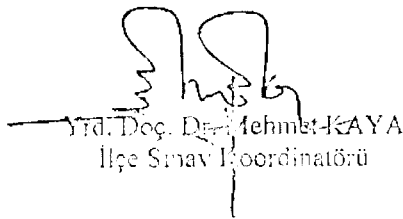 Yrd. Doç. Dr. Mehmet KAYA
İlçe Sınav Koordinatörü